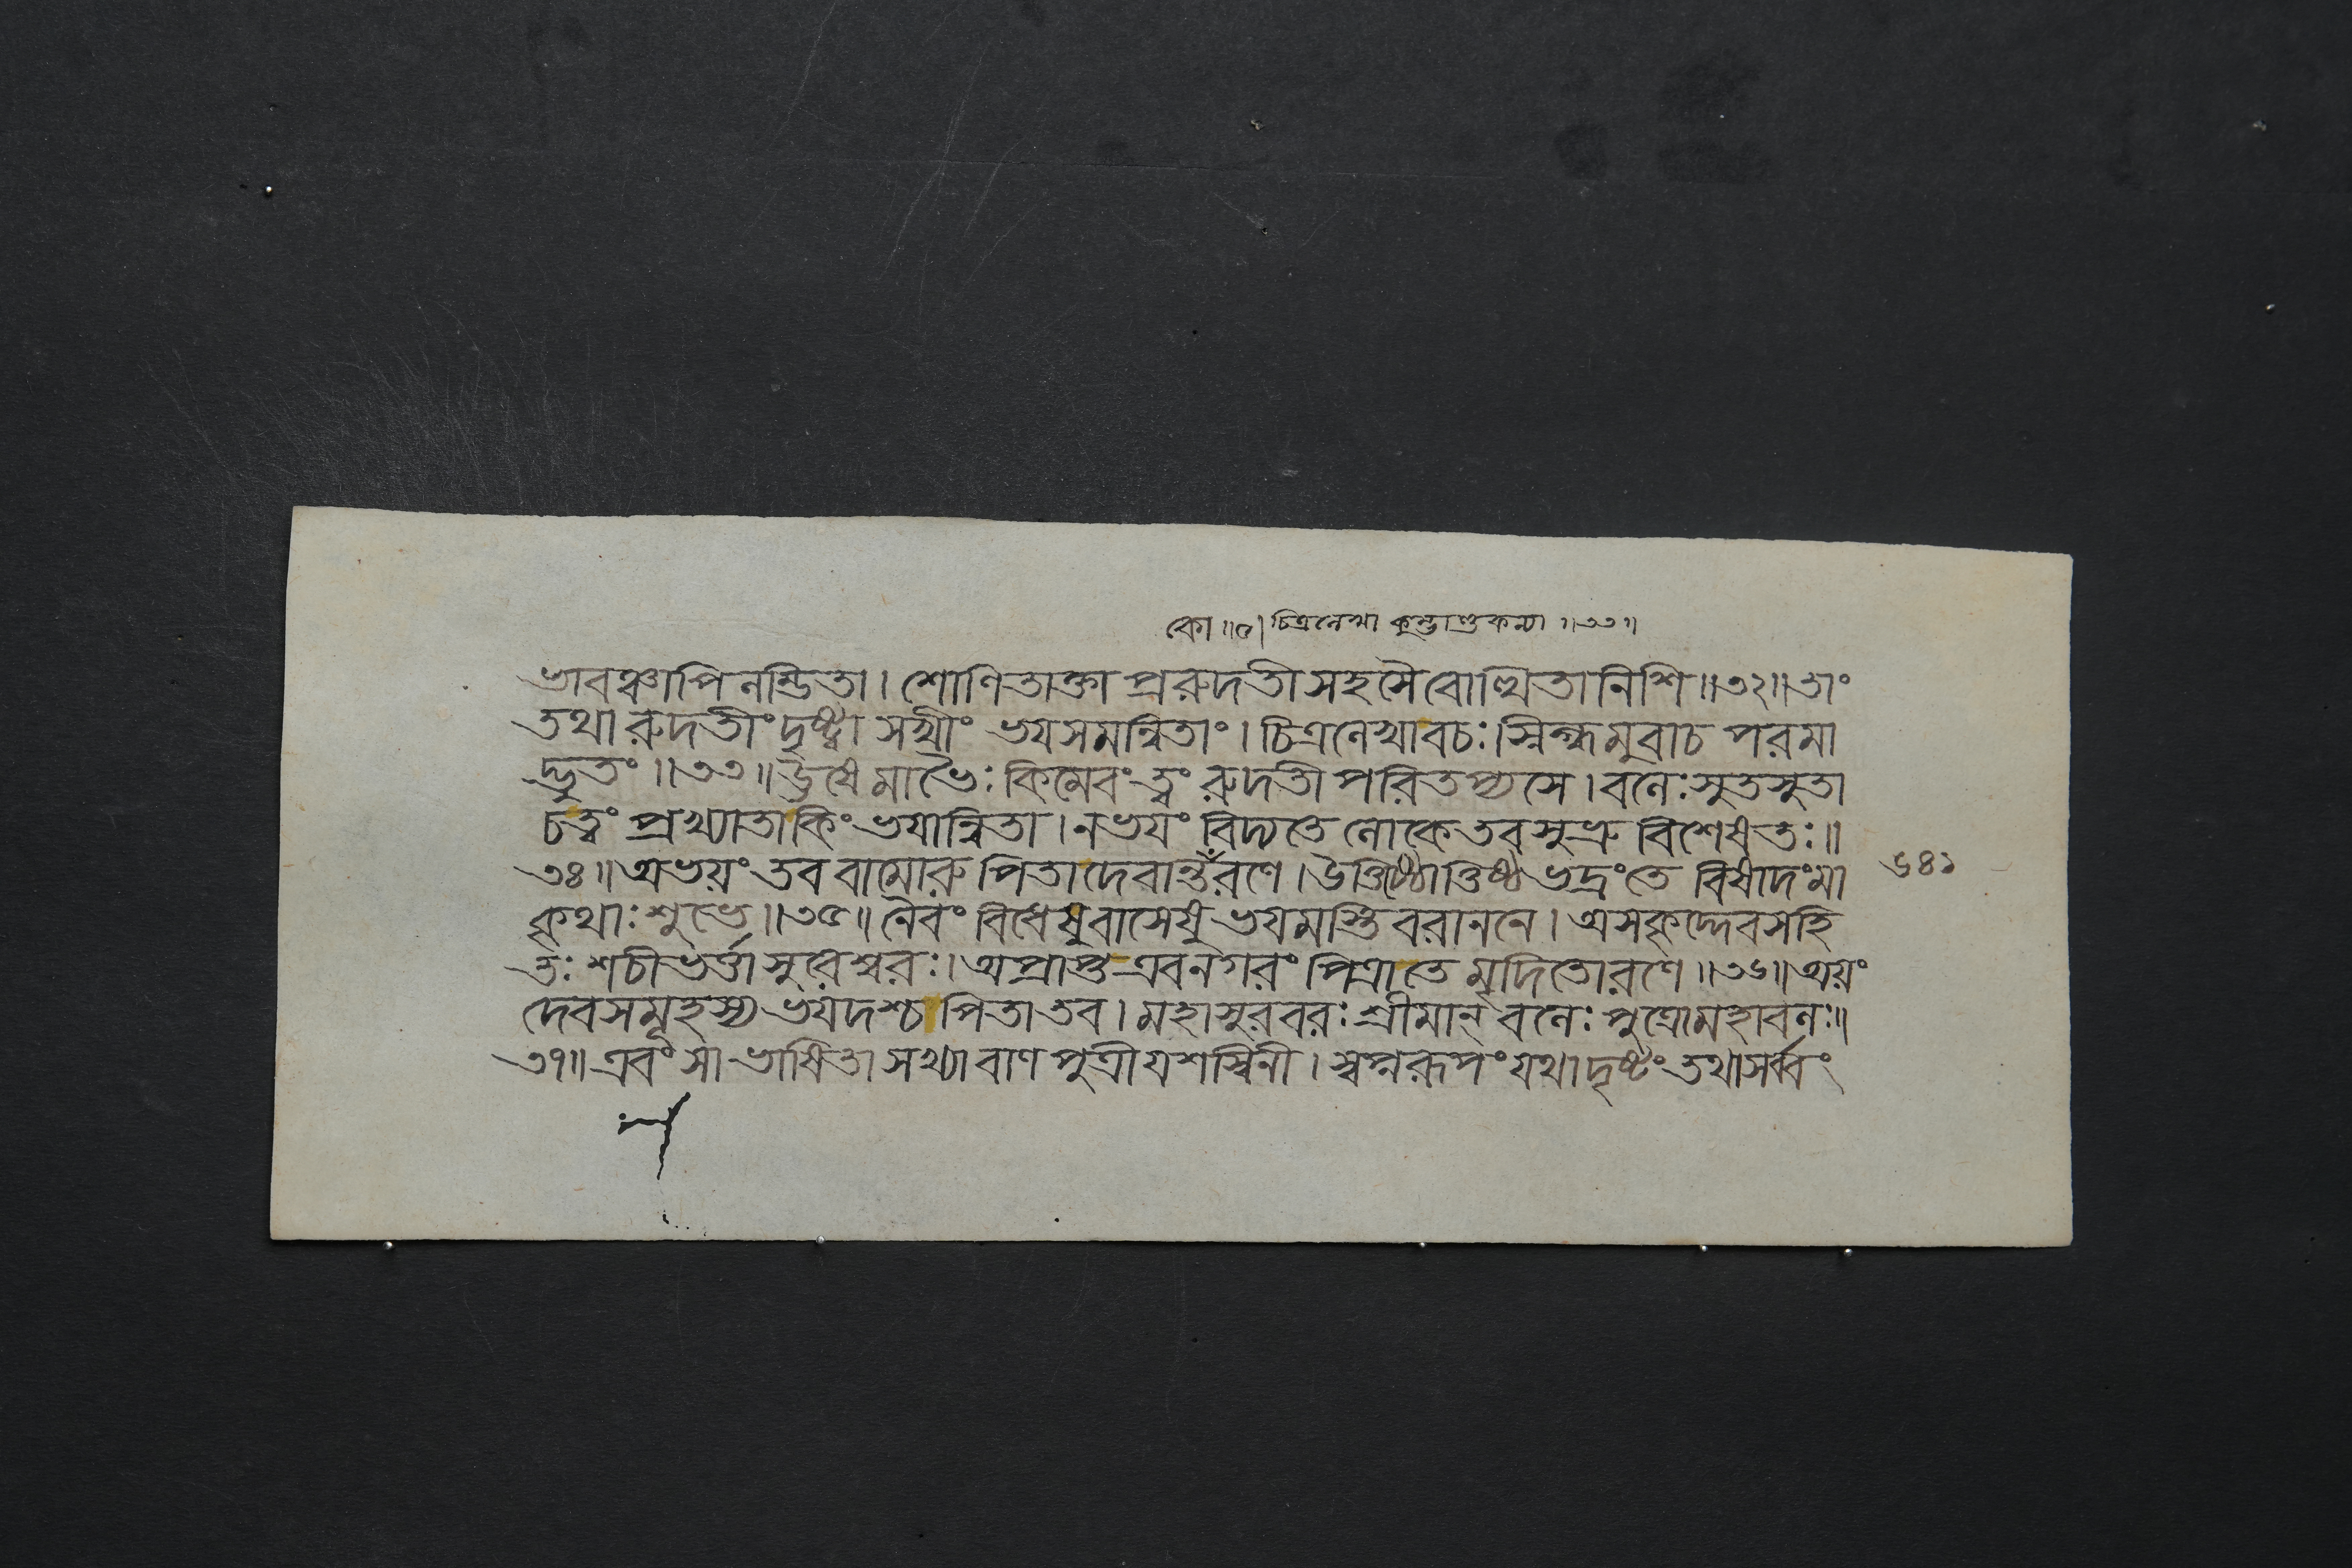 কো ॥৫। চিত্রলেখা কুম্ভাণ্ডকন্যা ॥৩৩॥
ভাবঞ্চাপি নন্ডিতা। শোণিতাক্তা প্ররুদতী সহসৈবোত্থিতা নিশি॥৩২॥তাং
তথা রুদতীং দৃষ্ট্বা সখীং ভয়সমন্বিতাং। চিত্রলেখাবচঃ।স্নিগ্ধমুবাচ পরমা
দ্ভুতং॥৩৩॥ঊষে মা ভৈঃ কিমেবং ত্বং রুদতী পরিতপ্যসে। বলেঃ সুতসুতা
চ ত্বং প্রখ্যাতা কিং ভয়ান্বিতা। ন ভয়ং বিদ্যতে লোকে তব সুভ্রু বিশেষতঃ॥
৩৪॥অভয়ং তব বামোরু পিতা দেবান্তঁরণে। উত্তিষ্ঠোত্তিষ্ঠ ভদ্রং তে বিষাদং মা
৬৪১
কৃথাঃ শুভে॥৩৫॥নৈবং বিধেষু বাসেষু ভয়মস্তি বরাননে। অসকৃদ্দেবসহি
তঃ শচীভর্ত্তা সুরেশ্বরঃ। অপ্রাপ্ত এব নগরং পিত্রা তে মৃদিতো রণে॥৩৬॥অয়ং
দেবসমূহস্য ভয়দশ্চ পিতা তব। মহাসুরবরঃ শ্রীমান্ বলেঃ পুত্রো মহাবলঃ॥
৩৭॥এবং সা ভাষিতা সখ্যা বাণপুত্রী যশস্বিনী। স্বপ্নরূপং যথা দৃষ্টং তথা সর্ব্বং